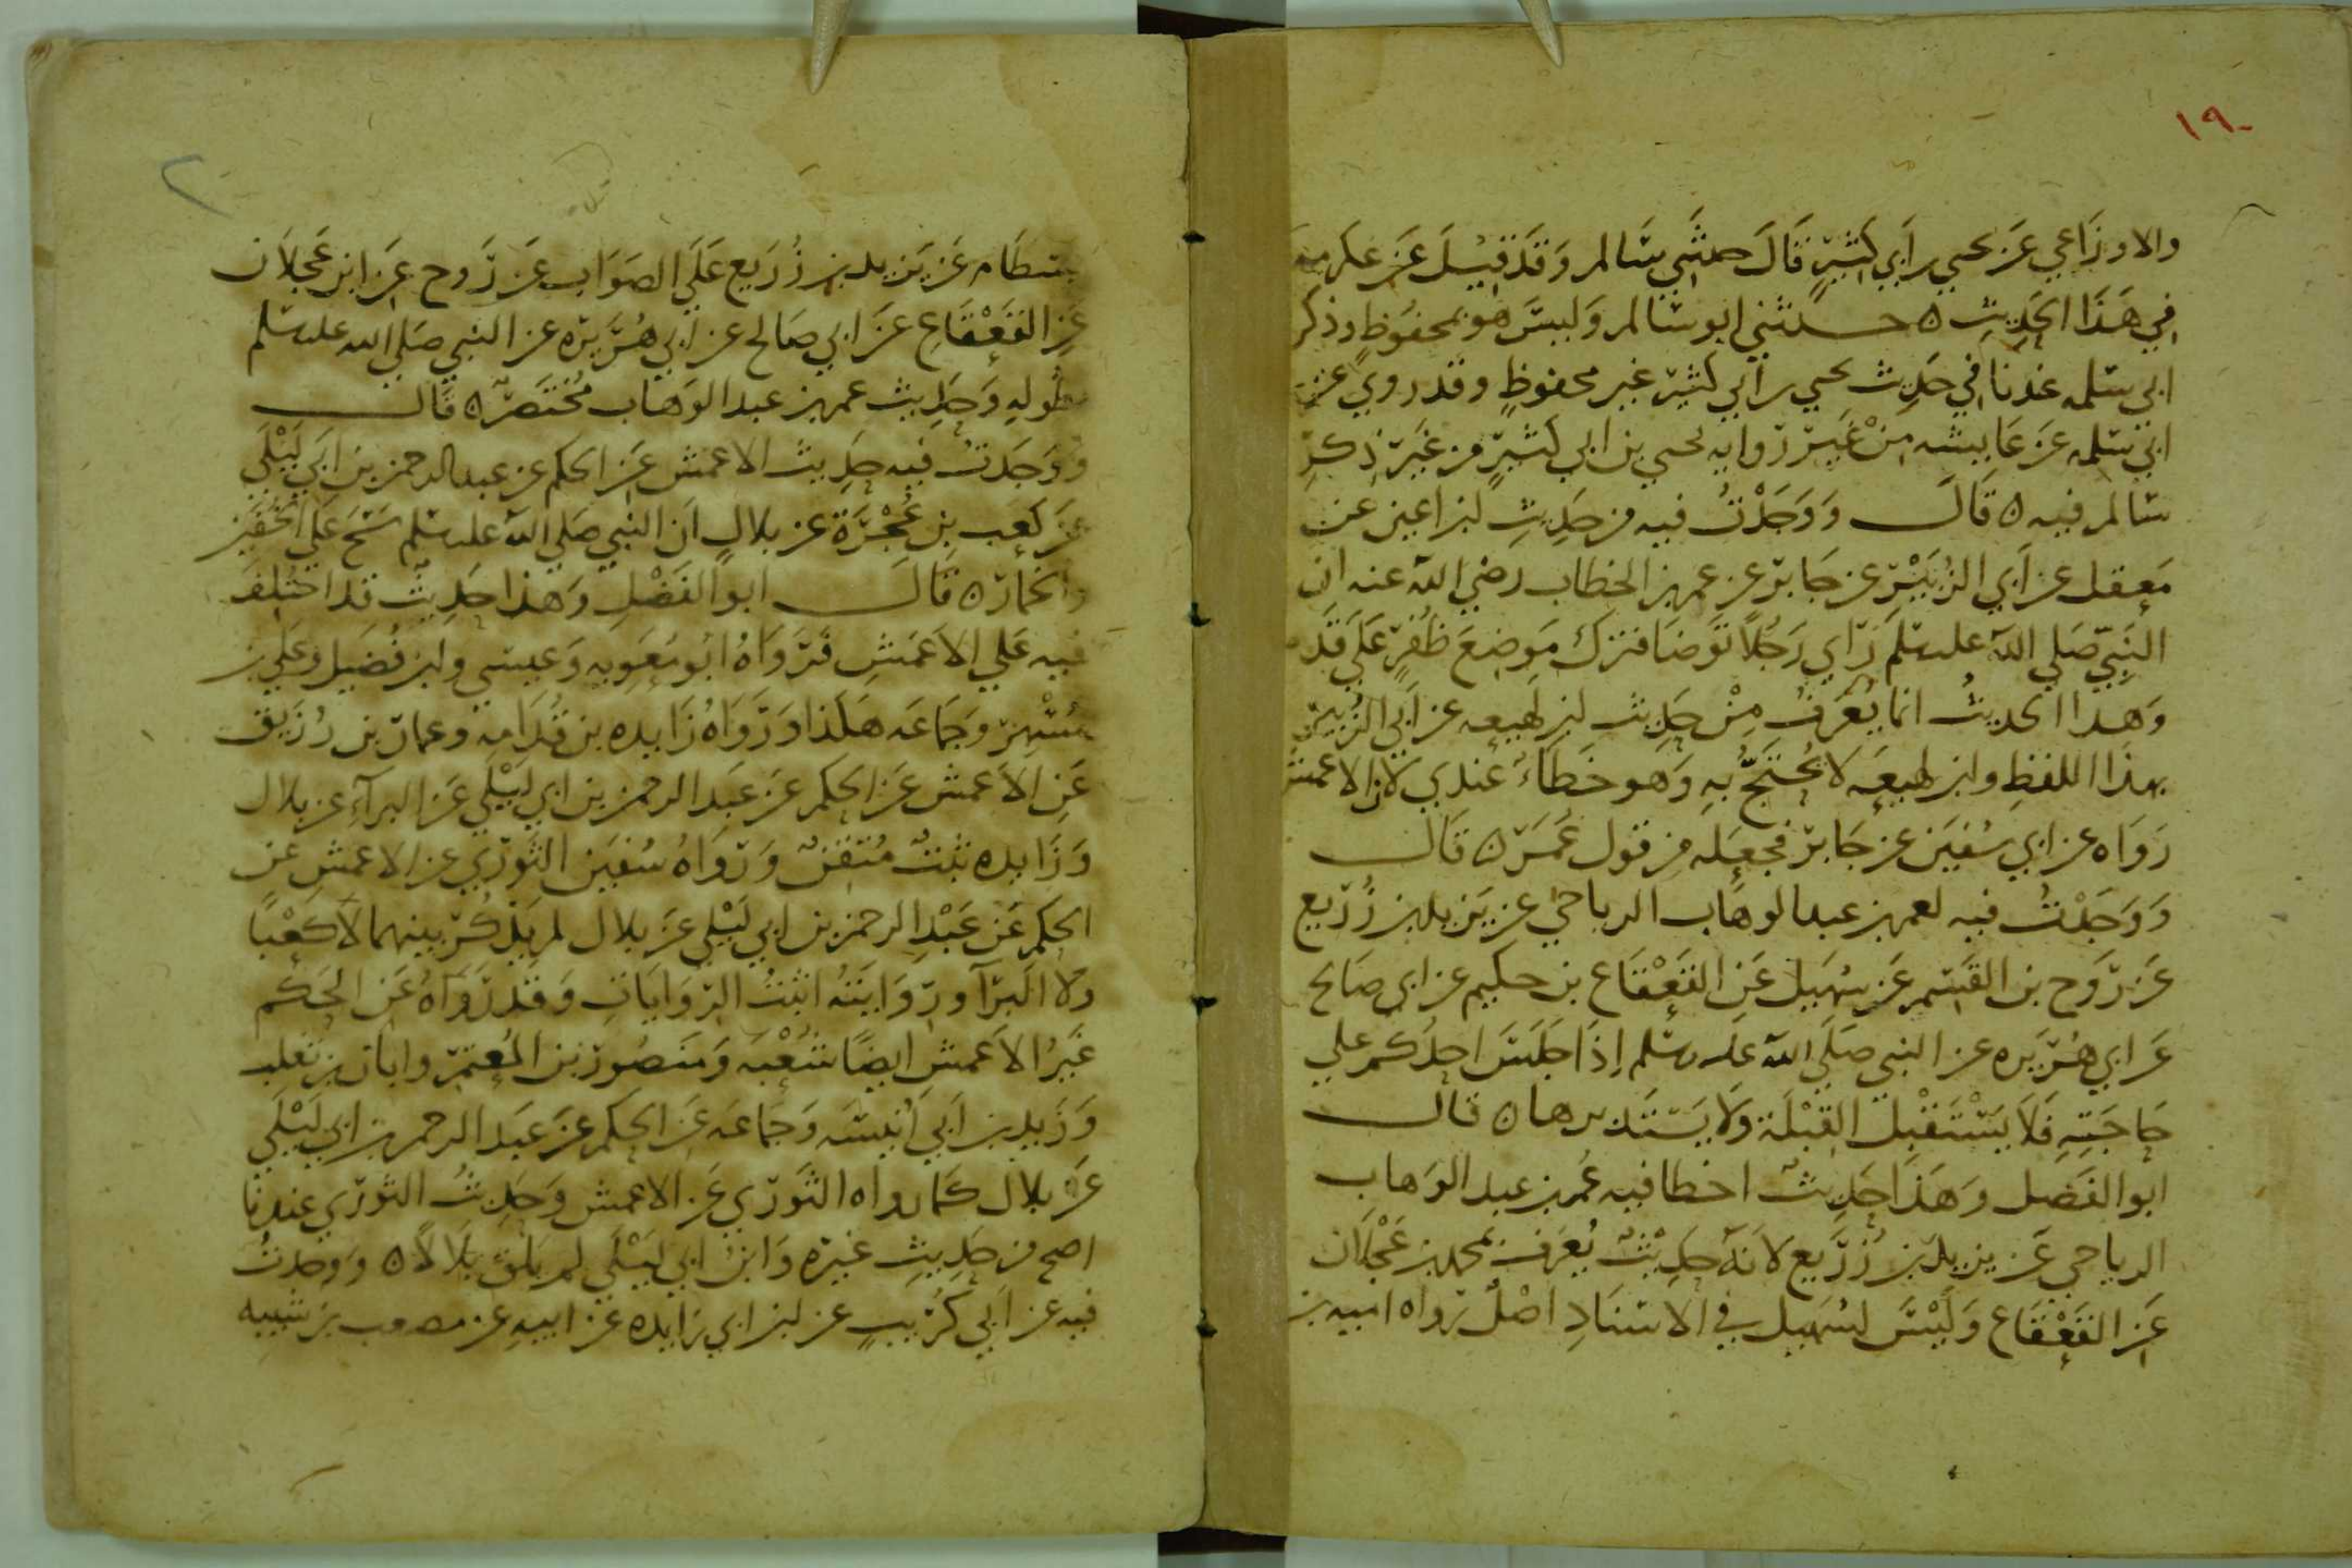 ١٩
والاوزَاعي عَن يحيي بن اَبي كَثيرٍ قَالَ حدثَني سَالم وَقَد قيْلَ عَن عكرمه
في هَذا الحَديث ه حدثني ابو سَالم وَليسَ هو بمحفُوظٍ وذكر
ابي سَلمه عندنا في حَديث يحيي بن اَبي كثير غير محفوظٍ وقد روي عن
ابي سَلمه عَن عَايشه مِنْ غَير رواية يحيي بن ابي كثيرٍ من غَير ذِكرِ
سَالم فيه ه قَالَ وَوَجَدْتُ فيه من حَديثِ ابن اعين عن
مَعقل عن اَبي الزُبَيْر عن جَابر عن عمر بن الخطاب رضي الله عنه ان
النَبِيّ صَلي الله عليه سلم رَاي رَجُلاً تَوضا فترك مَوضِعَ ظُفُرٍ عَلَي قدَ
وَهذا الحديثُ انما يُعَرفُ مِنْ حَدِيث ابن لهيعه عن اَبي الزُبير
بهذا اللفظِ وابن لهيعَه لا يُحْتَجُّ بهِ وَهو خَطاءٌ عندي لان الاعمش
رَوَاه عن ابي سُفيَن عن جَابر فجعَله من قول عُمَرَ ه قَال
وَوَجَدْتُ فيه لعمر بن عبد الوهاب الرياحي عن يَزيد بن زُرَيع
عَن رَوح بن القَسِم عَن سُهَيل عَنِ القَعْقَاع بن حكيم عن ابي صَالح
عَن ابي هُرَيره عن النبي صَلَي الله عليه سَلم اِذَا جَلَسَ احدُكم علي
حَاجَتِهِ فَلَا يَسْتَقْبِل القِبْلَة وَلا يَستَدبرها ه قال
ابو الفَضل وَهَذا حَديثٌ اخطا فيه عُمر بن عبد الوَهاب
الرياحي عَن يزيد بن زُرَيع لانَهُ حَدِيْثٌ يُعرَف بمحمد بن عَجْلَان
عَنِ القَعْقَاع وَلَيْسَ لسُهَيل في الاسْنَادِ اصْلٌ رواه اميه بن
٢
بسْطَام عَن يَزيد بن زُرَيع عَلَي الصَوَاب عَن رَوح عَن ابن عَجلاَن
عَنِ القَعْقَاعِ عَن ابي صَالح عن ابي هُرَيرَه عن النبي صَلي الله عليه سَلم
بطُولهِ وَحَديث عمر بن عبد الوَهاب مُختَصرٌ ه قَال
وَوَجَدتُ فيه حَديث الاعمش عَن الحكم عن عبد الرحمن بن ابي لَيْلَي
عَن كَعبِ بنِ عُجْرَة عن بلالٍ ان النبي صَلي الله عليه سَلم مَسَحَ عَلَي الخُفَين
والخمار ه قَالَ ابو الفَضْلِ وَهذا حَدِيثٌ قد اختُلِفَ
فيه عَلي الاَعمَشِ فَرَوَاهُ ابُو مُعَوِيه وَعيسَي وابن فُضَيل وعَلي بن
مُسْهِر وجَمَاعَه هَكَذا وَرَوَاهُ زَايده بن قُدَامه وعمار بن رُزَيق
عَنِ الاَعمش عَن الحكم عَن عَبد الرحمن بن ابي لَيْلَي عَن البَرآءِ عن بلال
وَزَايده ثَبْتٌ مُتقنٌ وَرَوَاهُ سُفيَن الثَوري عن الاعمشِ عَن
الحكم عَنْ عَبْدِ الرحمن بن ابي لَيْلي عَن بلال لم يَذكُر بينهما لا كَعْبًا
ولا البَرَآ وروَايَتهُ اثبَتُ الرّوَايَاتِ وَقَد رَوَاهُ عَن الحَكم
غَيرُ الاَعمشِ ايضًا شُعْبَه وَمَنصُور بن المُعتمر وابان بن تغلب
وَزَيد بن اَبي اُنَيسَه وَجَمَاعَه عَن الحكم عَن عَبد الرحمن بن ابي لَيْلَي
عَن بلال كمَا رواه الثَوري عَن الاعمش وَحَديثُ الثوري عندنا
اصح من حَدِيثِ غيره وَابنُ ابي لَيْلَي لم يَلقَ بلاَلاً ه وَوجدتُ
فيه عن اَبي كُرَيبٍ عن ابن ابي زَايده عن ابيهِ عن مصعب بن شيبه